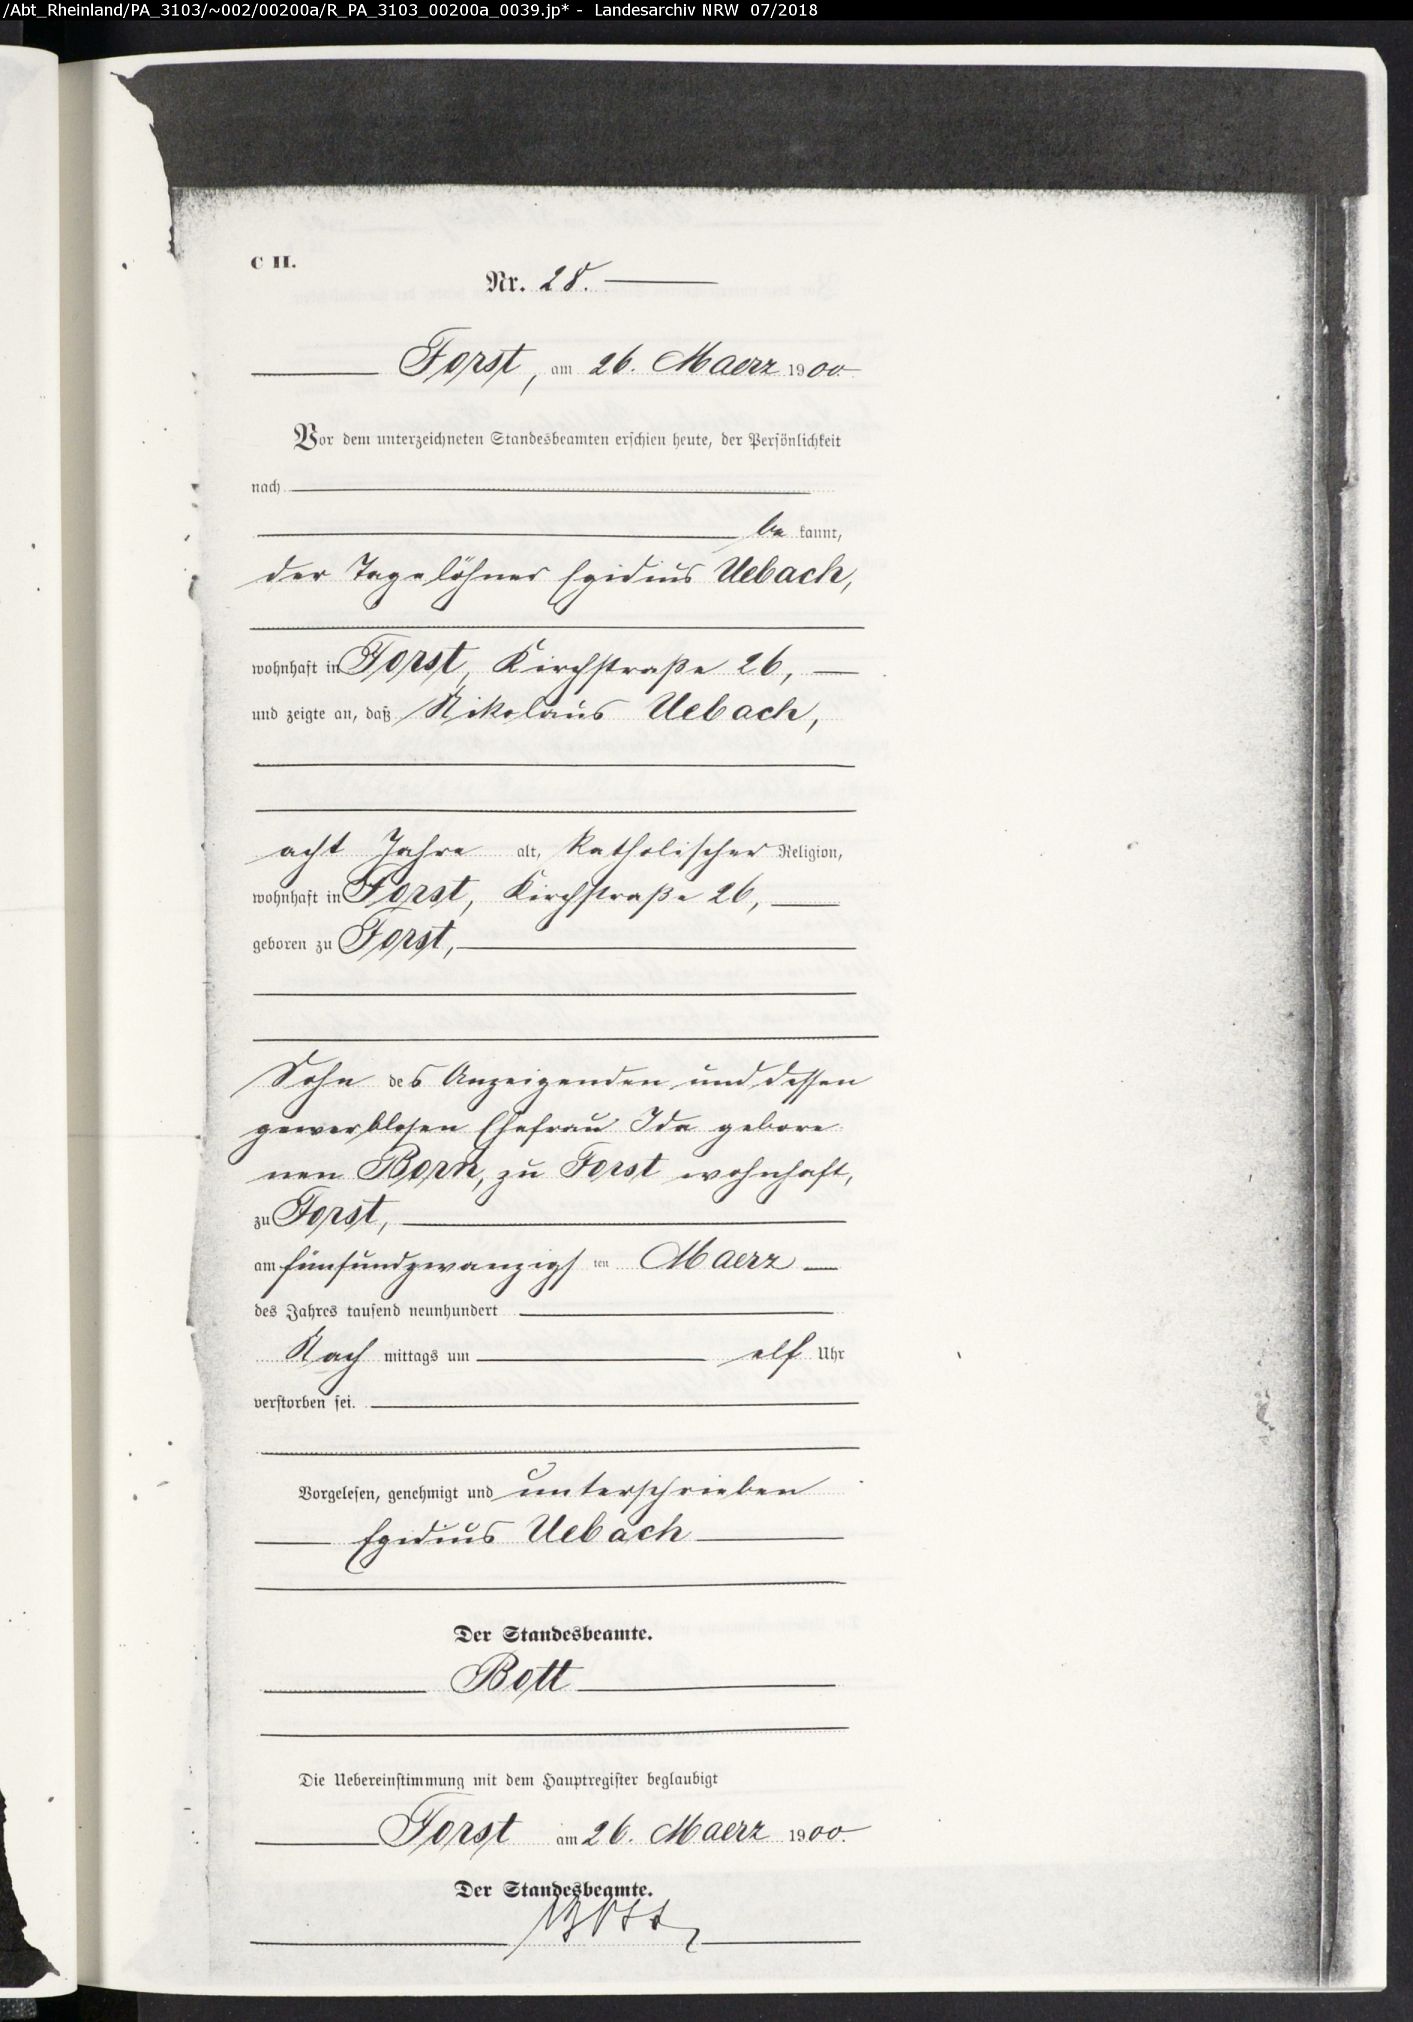 /Abt_Rheinland/PA_3103/~002/00200a/R_PA_3103_00200a_0039.jp* - Landesarchiv NRW 07/2018
C II.
Nr. 28.
Forst, am 26. Maerz 1900
Vor dem unterzeichneten Standesbeamten erschien heute, der Persönlichkeit
nach
be kannt,
der Tagelöhner Egidius Uebach,
wohnhaft in Forst, Kirchstraße 26,
und zeigte an, daß Nikolaus Uebach,
acht Jahre alt, katholischer Religion,
wohnhaft in Forst, Kirchstraße 26,
geboren zu Forst,
Sohn des Anzeigenden und dessen
gewerblosen Ehefrau Ida gebore
nen Born, zu Forst wohnhaft,
zu Forst,
am fünfundzwanzigs ten Maerz
des Jahres tausend neunhundert
Nach mittags um elf Uhr
verstorben sei.
Vorgelesen, genehmigt und unterschrieben
Egidius Uebach
Der Standesbeamte.
Bott
Die Uebereinstimmung mit dem Hauptregister beglaubigt
Forst am 26. Maerz 1900.
Der Standesbeamte.
Bott